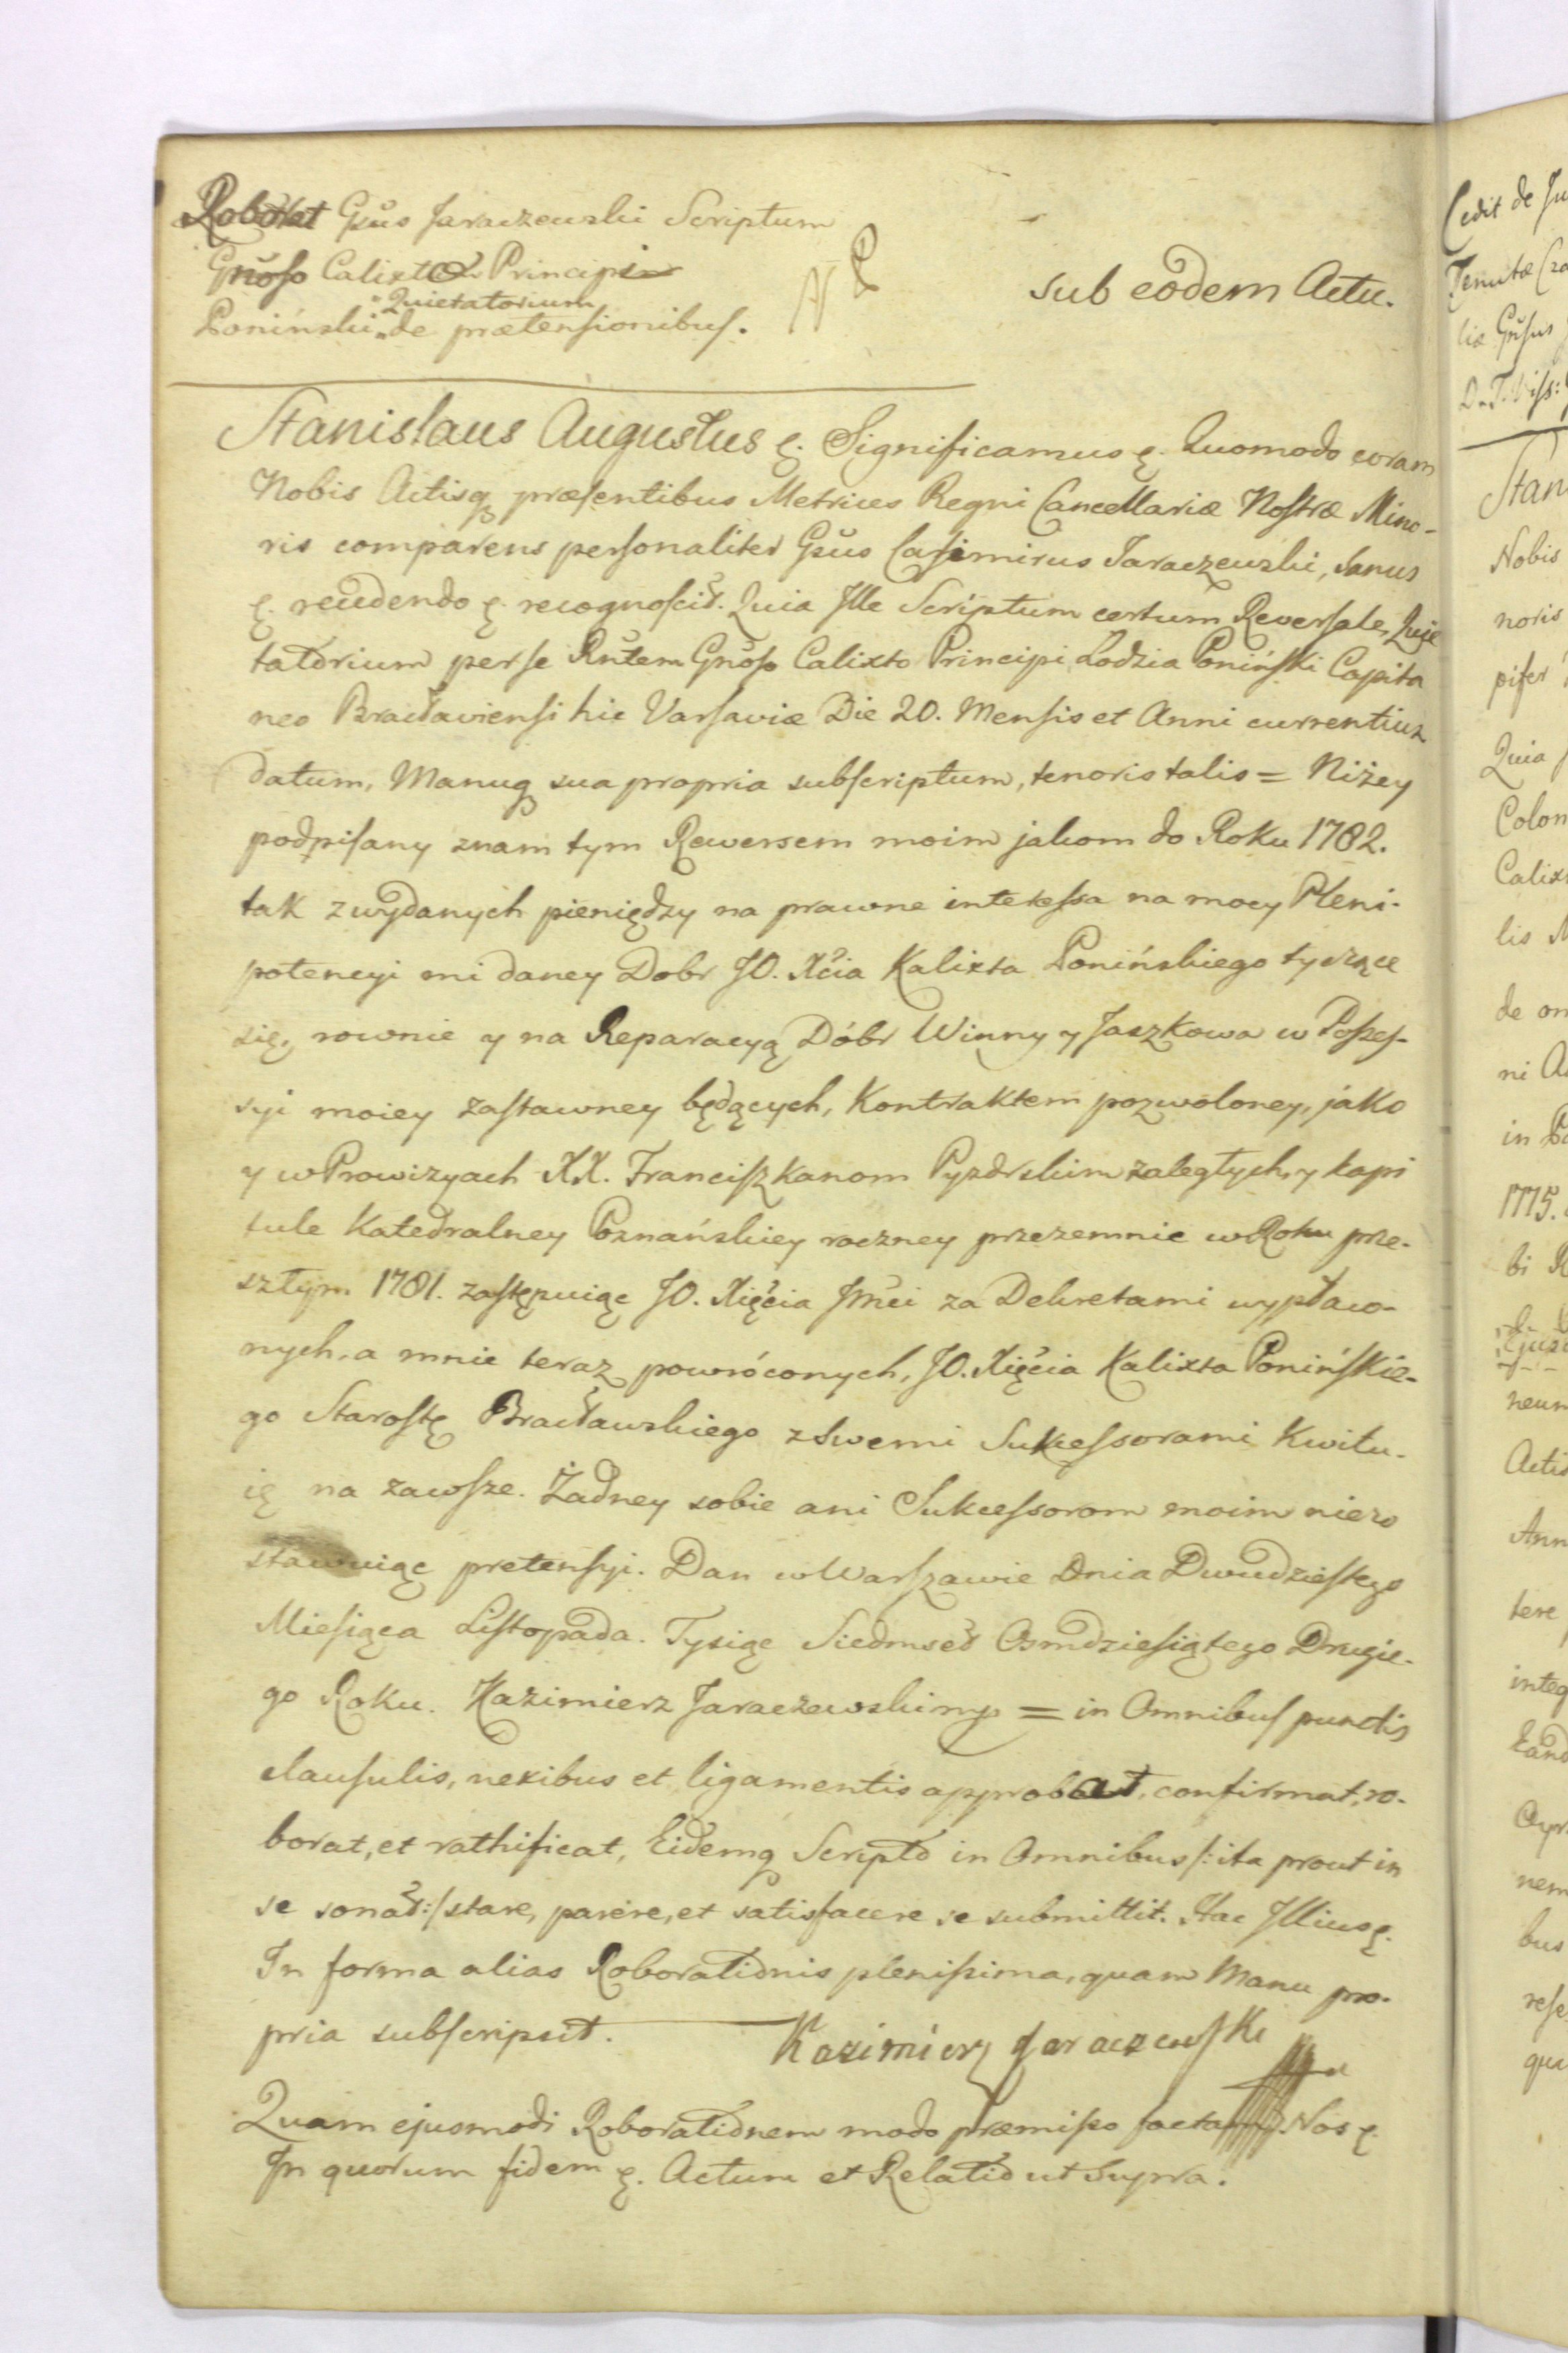 Roborat Gsus Jaraczewski Scriptum
Gnoso Calixto Principi
Quietatorium
Poniński de prætensionibus.
sub eodem Actu.
Stanislaus Augustus ę. Significamus ę. Quomodo coram
Nobis Actisq præsentibus Metrices Regni Cancellariæ Nostræ Mino-
ris comparens personaliter Gsus Casimirus Jaraczewski, Sanus
ę. recedendo ę. recognoscit. Quia Ille Scriptum certum Reversale, Quie
tatorium per se Rntem Gnoso Calixto Principi Lodzia Poniński Capita
neo Bracłaviensi hic Varsaviæ Die 20. Mensis et Anni currentium
datum, Manuq sua propria subscriptum, tenoris talis = Niżey
podpisany znam tym Rewersem moim jakom do Roku 1782.
tak z wydanych pieniędzy na prawne interessa na mocy Pleni-
potencyi mi daney Dobr JO. Xcia Kalixta Ponińskiego tyczące
się, rownie y na Reparacyą Dóbr Winny y Jaszkowa w Posses-
syi moiey zastawney będących, Kontraktem pozwoloney, jako
y w Prowizyach XX. Franciszkanom Pyzdrskim zaległych, y kapi
tule Katedralney Poznańskiey roczney przezemnie w Roku prze-
szłym 1781. zastępuiąc JO. Xięcia Jmci za Dekretami wypłaco-
nych, a mnie teraz powróconych, JO. Xięcia Kalixta Ponińskie-
go Starostę Bracławskiego z Swemi Sukcessorami Kwitu-
ię na zawsze. Żadney sobie ani Sukcessorom moim niezo
stawuiąc pretensyi. Dan w Warszawie Dnia Dwudziestego
Miesiąca Listopada. Tysiąc Siedmset Osmdziesiątego Drugie-
go Roku. Kazimierz Jaraczewski mp = in Omnibus punctis
clausulis, nexibus et ligamentis approbat, confirmat, ro-
borat, et rathificat, Eidemq Scripto in Omnibus /: ita prout in
se sonat :/ stare, parere, et satisfacere se submittit. Hac Illius ę.
In forma alias Roborationis plenissima, quam Manu pro-
pria subscripsit. Kazimierz Jaraczewski
Quam ejusmodi Roborationem modo præmisso factam Nos ę.
In quorum fidem ę. Actum et Relatio ut Supra.
Cedit de
Tenutæ
liæ Gnsus
Stan
Nobis
noris
pifer
Quia
Colon
Calix
lis
de om
ni
in
1775.
bi
neum
Actis
Ann
tere
integ
nem
bus
rese
qua